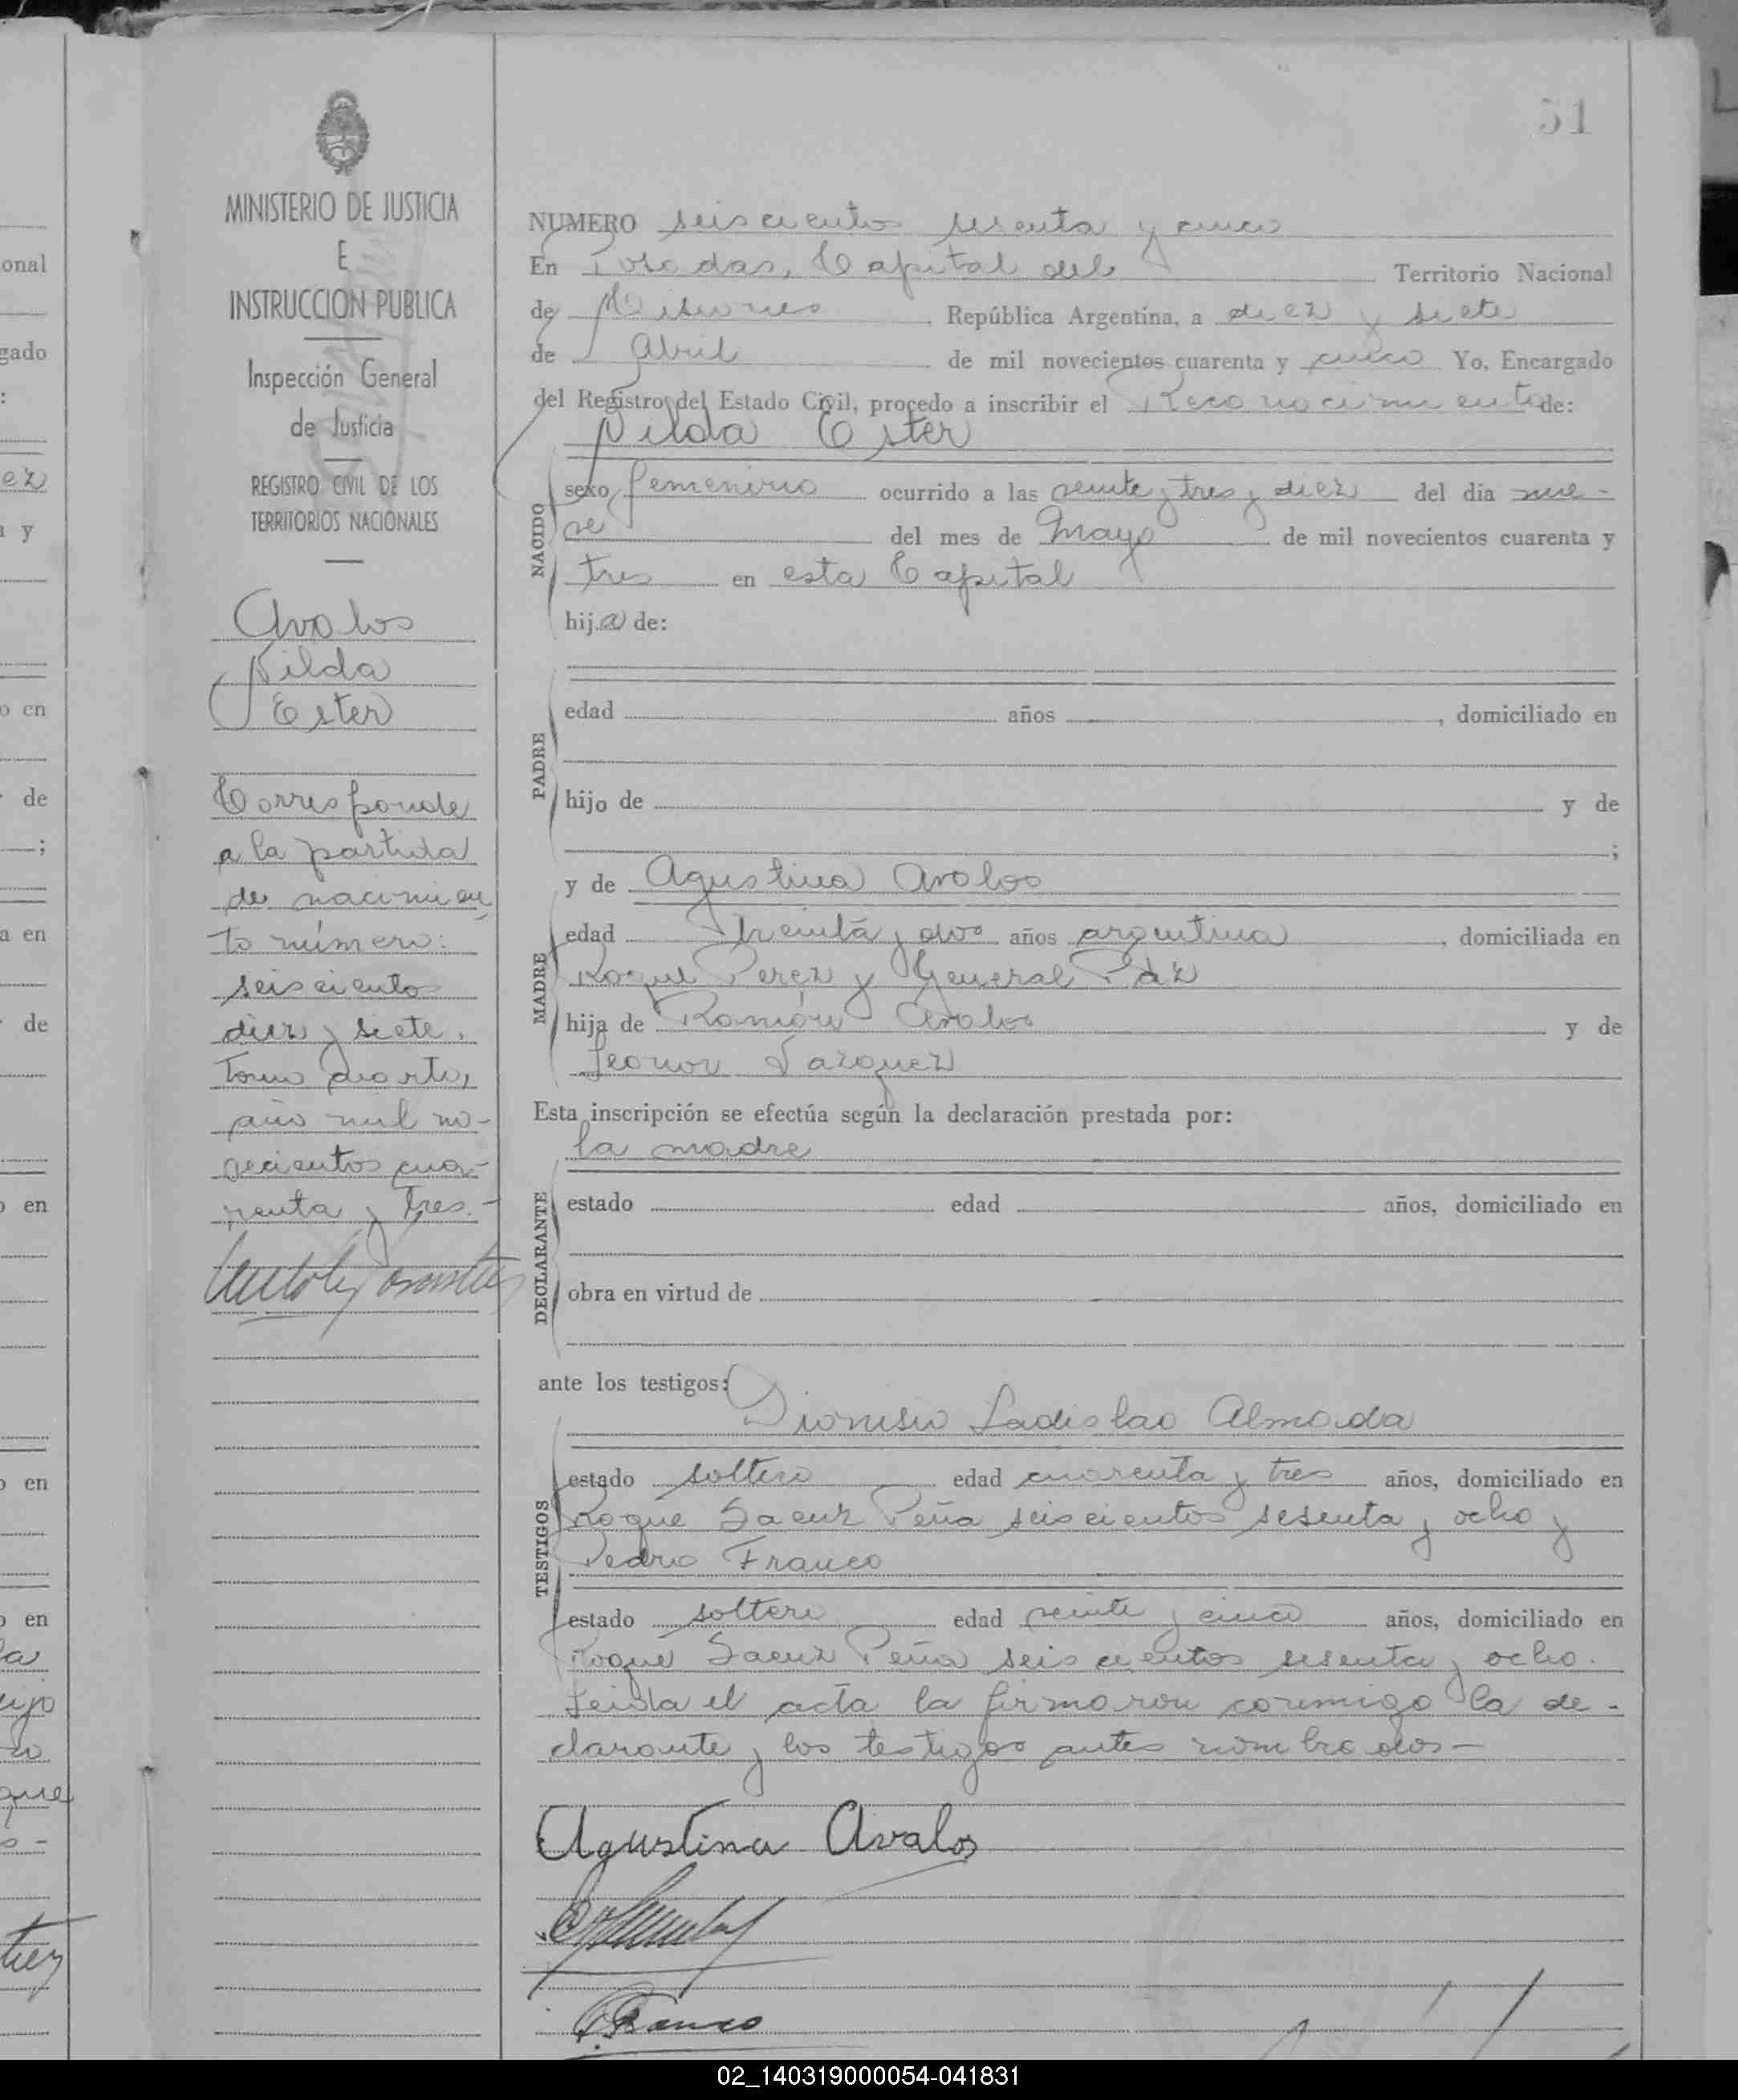 51
MINISTERIO DE JUSTICIA
E
INSTRUCCION PUBLICA
Inspección General
de Justicia
REGISTRO CIVIL DE LOS
TERRITORIOS NACIONALES
Avalos
Nilda
Ester
Corresponde
a la partida
de nacimien
to número:
seiscientos
diez y siete,
tomo cuarto,
año mil no-
vecientos cua-
renta y tres.-
NUMERO seiscientos sesenta y cinco
En Posadas, Capital del Territorio Nacional
de Misiones República Argentina, a diez y siete
de Abril de mil novecientos cuarenta y cinco Yo, Encargado
del Registro del Estado Civil, procedo a inscribir el Reconocimiento de:
Nilda Ester
NACIDO
sexo femenino ocurrido a las veinte y tres y diez del día nue-
ve del mes de Mayo de mil novecientos cuarenta y
tres en esta Capital
hija de:
PADRE
edad años , domiciliado en
hijo de y de
;
y de Agustina Avalos
MADRE
edad treinta y dos años argentina , domiciliada en
Roque Perez y General Páz
hija de Ramón Avalos y de
Leonor Vazquez
Esta inscripción se efectúa según la declaración prestada por:
la madre
DECLARANTE
estado edad años, domiciliado en
obra en virtud de
ante los testigos:
Dionisio Ladislao Almada
TESTIGOS
estado soltero edad cuarenta y tres años, domiciliado en
Roque Saenz Peña seiscientos sesenta y ocho y
Pedro Franco
estado soltero edad veinte y cinco años, domiciliado en
Roque Saenz Peña seiscientos sesenta y ocho.
Leida el acta la firmaron conmigo la de-
clarante y los testigos antes nombrados-
Agustina Avalos
PFranco
02_140319000054-041831